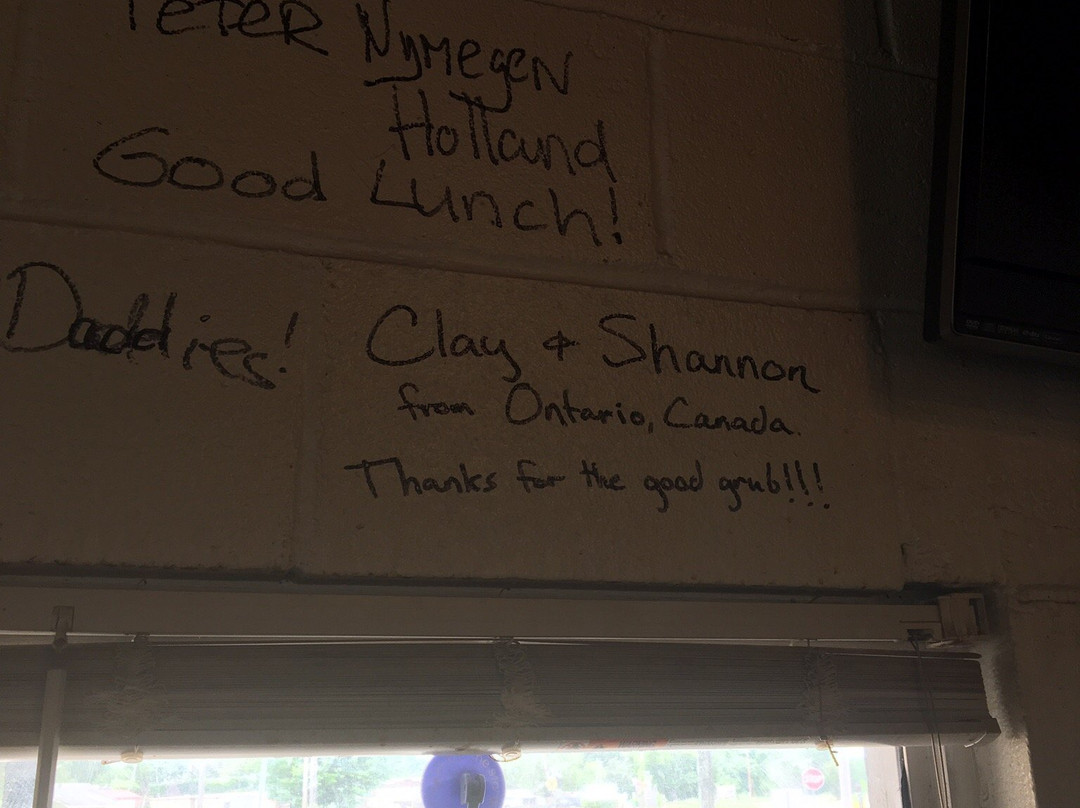 PETER Nymegen
Holland
Good Lunch!
Daddies!
Clay & Shannon
from Ontario, Canada.
Thanks for the good grub!!!